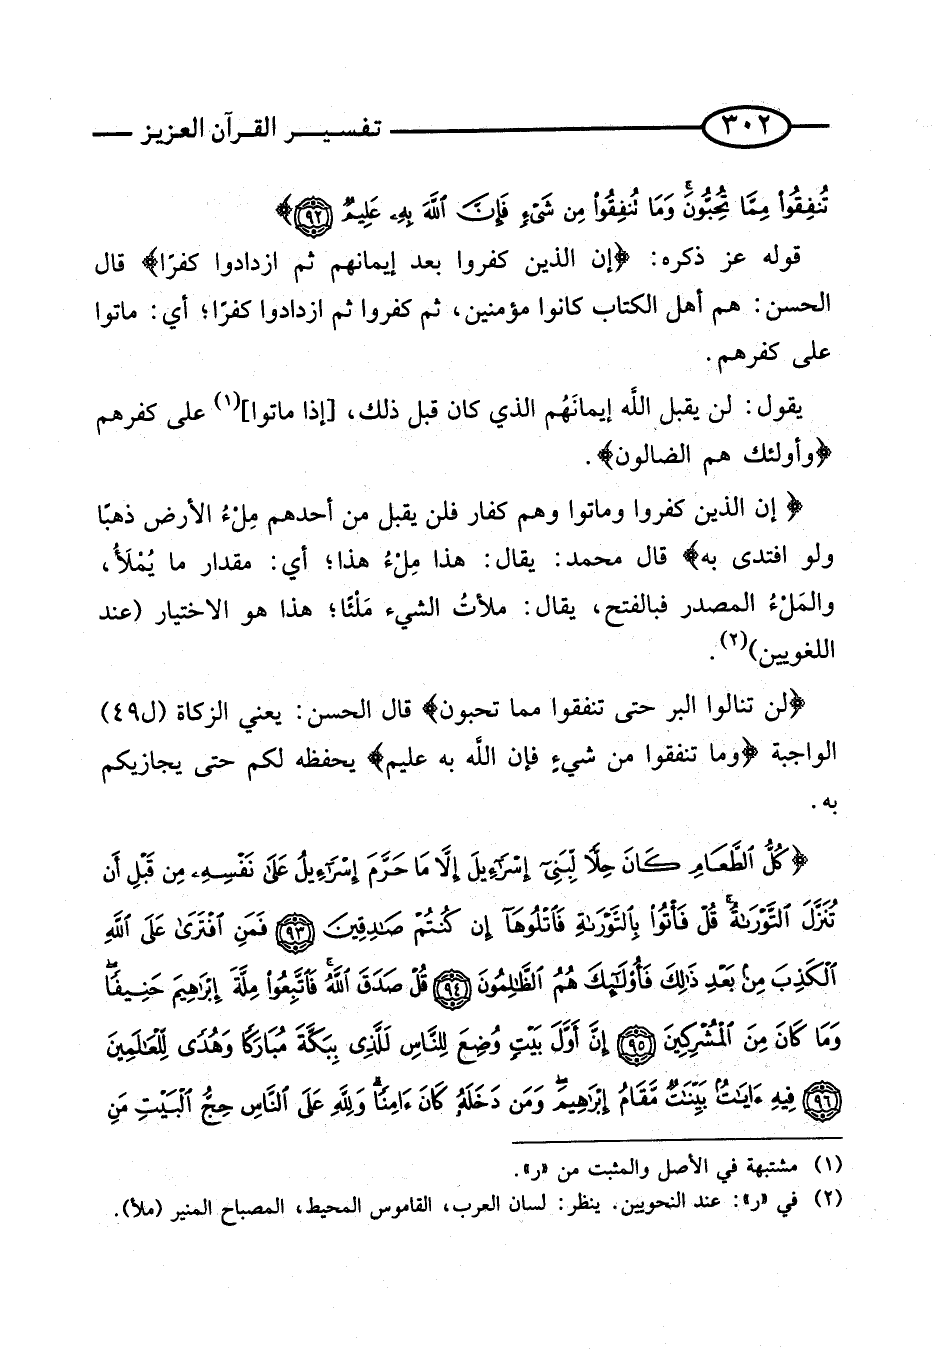 ٣٠٢ تفسير القرآن العزيز
تُنفِقُوا۟ مِمَّا تُحِبُّونَ ۚ وَمَا تُنفِقُوا۟ مِن شَىْءٍ فَإِنَّ ٱللَّهَ بِهِۦ عَلِيمٌ ﴿٩٢﴾﴾
قوله عز ذكره: ﴿إن الذين كفروا بعد إيمانهم ثم ازدادوا كفرًا﴾ قال
الحسن: هم أهل الكتاب كانوا مؤمنين، ثم كفروا ثم ازدادوا كفرًا؛ أي: ماتوا
على كفرهم.
يقول: لن يقبل اللَّه إيمانَهُم الذي كان قبل ذلك، [إذا ماتوا](١) على كفرهم
﴿وأولئك هم الضالون﴾.
﴿إن الذين كفروا وماتوا وهم كفار فلن يقبل من أحدهم مِلْءُ الأرض ذهبًا
ولو افتدى به﴾ قال محمد: يقال: هذا مِلْءُ هذا؛ أي: مقدار ما يُمْلَأُ،
والمَلْءُ المصدر فبالفتح، يقال: ملأتُ الشيء مَلْئًا؛ هذا هو الاختيار (عند
اللغويين)(٢).
﴿لن تنالوا البر حتى تنفقوا مما تحبون﴾ قال الحسن: يعني الزكاة (ل٤٩)
الواجبة ﴿وما تنفقوا من شيءٍ فإن اللَّه به عليم﴾ يحفظه لكم حتى يجازيكم
به.
﴿كُلُّ ٱلطَّعَامِ كَانَ حِلًّا لِّبَنِىٓ إِسْرَٰٓءِيلَ إِلَّا مَا حَرَّمَ إِسْرَٰٓءِيلُ عَلَىٰ نَفْسِهِۦ مِن قَبْلِ أَن
تُنَزَّلَ ٱلتَّوْرَىٰةُ ۗ قُلْ فَأْتُوا۟ بِٱلتَّوْرَىٰةِ فَٱتْلُوهَآ إِن كُنتُمْ صَٰدِقِينَ ﴿٩٣﴾ فَمَنِ ٱفْتَرَىٰ عَلَى ٱللَّهِ
ٱلْكَذِبَ مِنۢ بَعْدِ ذَٰلِكَ فَأُو۟لَٰٓئِكَ هُمُ ٱلظَّٰلِمُونَ ﴿٩٤﴾ قُلْ صَدَقَ ٱللَّهُ ۗ فَٱتَّبِعُوا۟ مِلَّةَ إِبْرَٰهِيمَ حَنِيفًا ۖ
وَمَا كَانَ مِنَ ٱلْمُشْرِكِينَ ﴿٩٥﴾ إِنَّ أَوَّلَ بَيْتٍ وُضِعَ لِلنَّاسِ لَلَّذِى بِبَكَّةَ مُبَارَكًا وَهُدًى لِّلْعَٰلَمِينَ
﴿٩٦﴾ فِيهِ ءَايَٰتٌۢ بَيِّنَٰتٌ مَّقَامُ إِبْرَٰهِيمَ ۖ وَمَن دَخَلَهُۥ كَانَ ءَامِنًا ۗ وَلِلَّهِ عَلَى ٱلنَّاسِ حِجُّ ٱلْبَيْتِ مَنِ
(١) مشتبهة في الأصل والمثبت من «ر».
(٢) في «ر»: عند النحويين. ينظر: لسان العرب، القاموس المحيط، المصباح المنير (ملأ).